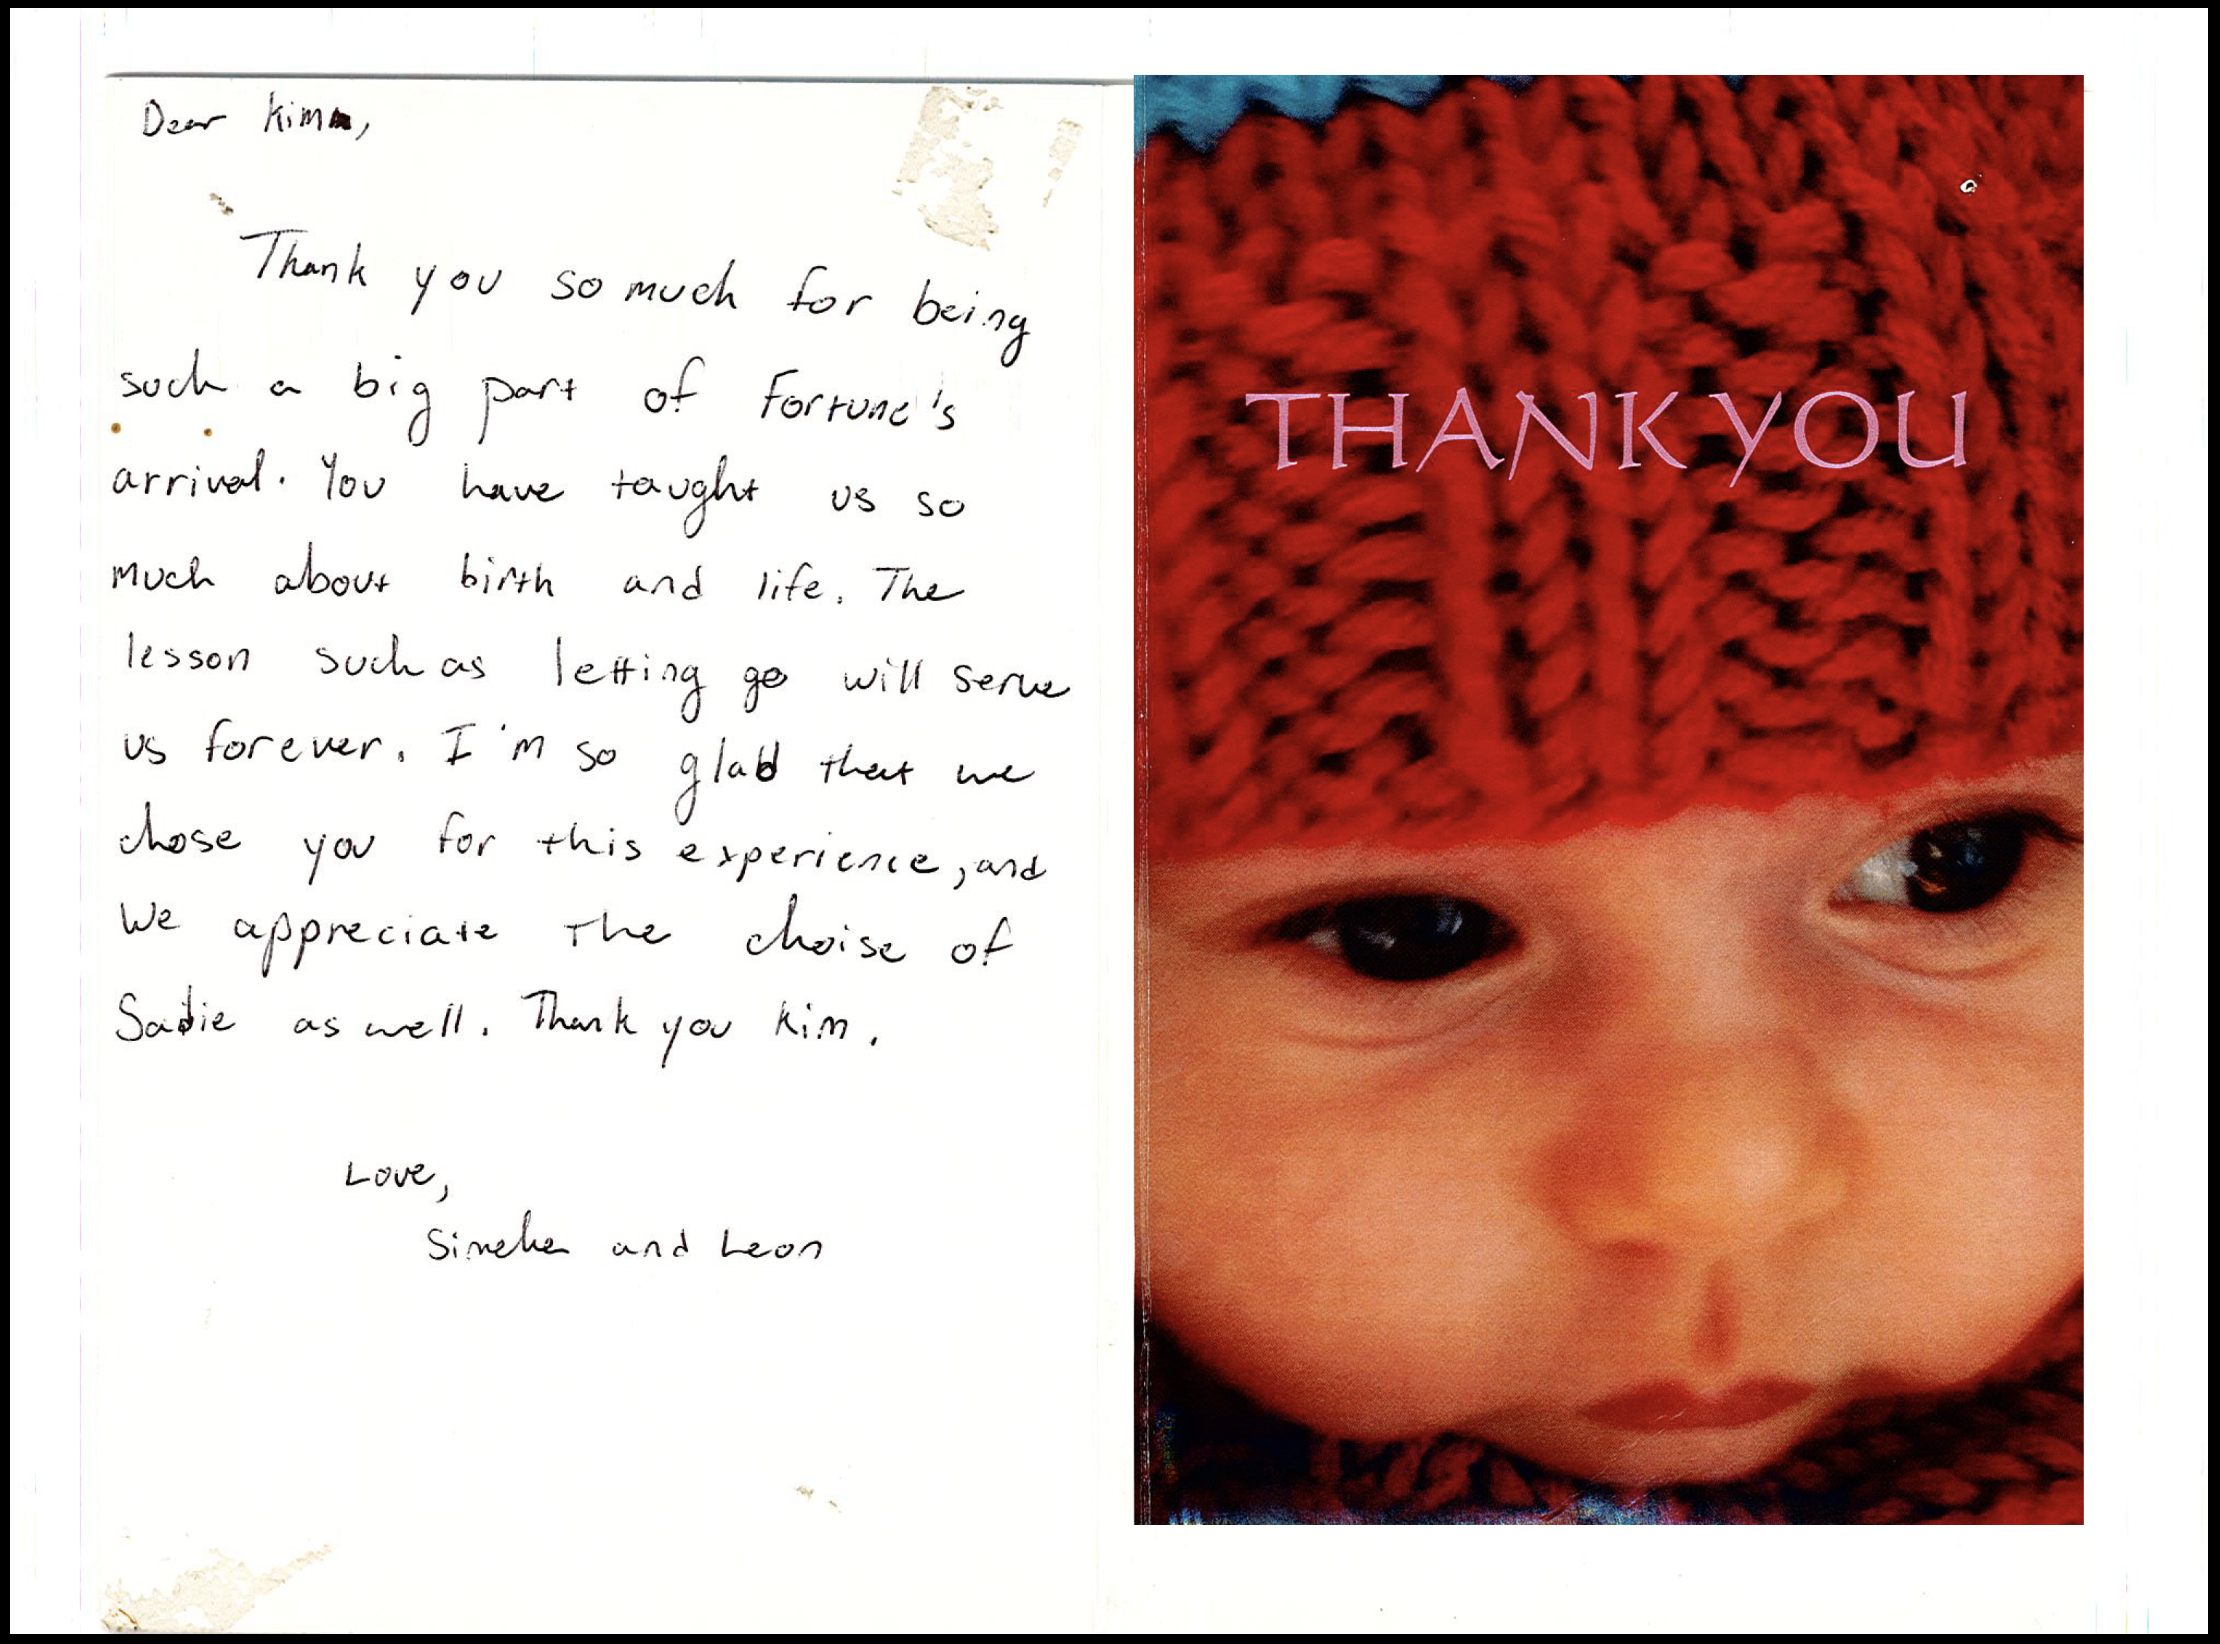 Dear Kim,
Thank you so much for being
such a big part of Fortune's
arrival. You have taught us so
much about birth and life. The
lesson such as letting go will serve
us forever. I'm so glad that we
chose you for this experience, and
We appreciate the choise of
Sadie as well. Thank you Kim.
Love,
and Leon
THANK YOU